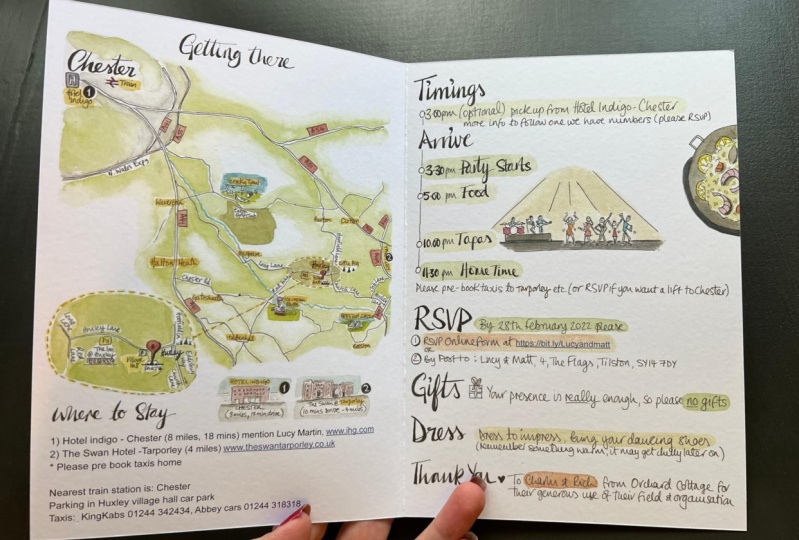 Getting there
Chester
Train
Hotel
Indigo
1
N Wales Exp.
Waverton
Hatton Heath
Chester Rd
Huxley Lane
Huxley
Village
Hall
HOTEL INDIGO
1
CHESTER
2
Where to Stay
1) Hotel indigo - Chester (8 miles, 18 mins) mention Lucy Martin, www.ihg.com
2) The Swan Hotel -Tarporley (4 miles) www.theswantarporley.co.uk
* Please pre book taxis home
Nearest train station is: Chester
Parking in Huxley village hall car park
Taxis: KingKabs 01244 342434, Abbey cars 01244 318318
Timings
03:00pm (optional) pick up from Hotel Indigo-Chester
more info to follow one we have numbers (please RSVP)
Arrive
03:30 pm Party Starts
5:00 pm Food
10:00 pm Tapas
11:30 pm Home Time
Please pre-book taxis to Tarporley etc (or RSVP if you want a lift to Chester)
RSVP By 28th February 2022 please
① RSVP Online Form at https://bit.ly/Lucyandmatt
or
② By Post to: Lucy & Matt, 4, The Flags, Tilston, SY14 7DY
Gifts Your presence is really enough, so please no gifts
Dress Dress to impress, bring your dancing shoes
(Remember something warm, it may get chilly later on)
Thank You ♥ To Charlie & Rich from Orchard Cottage for
their generous use of their field & organisation